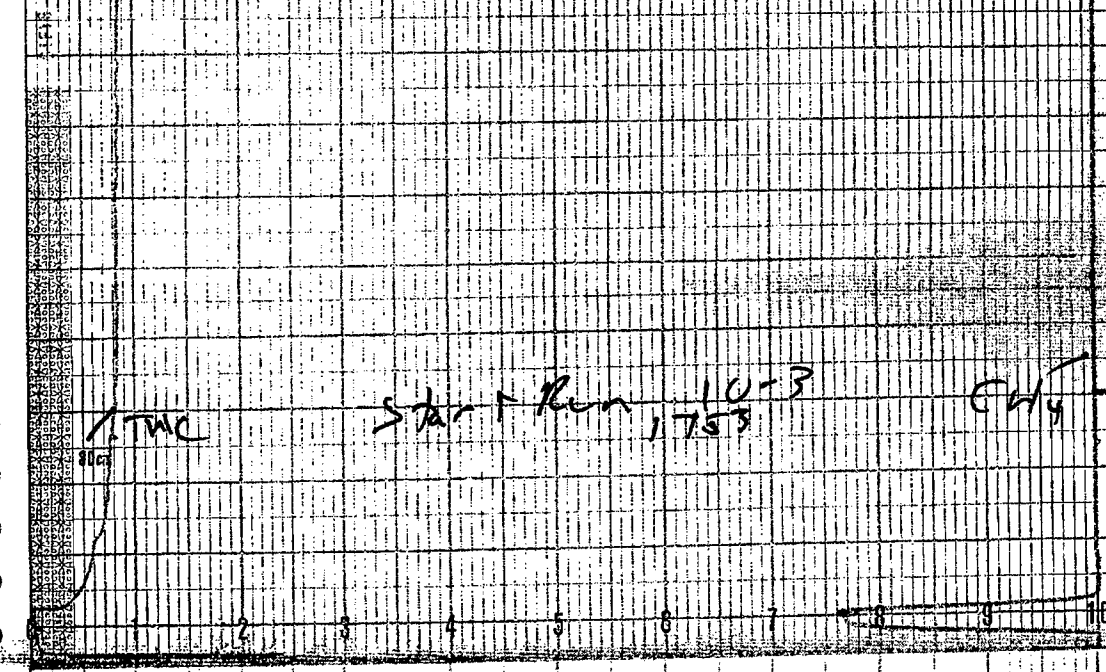 Start Run 10-3
THC 1753 CH4
0 1 2 3 4 5 6 7 8 9 10